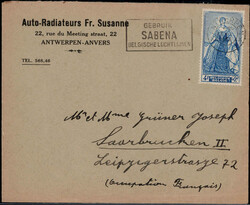 Auto-Radiateurs Fr. Susanne
22, rue du Meeting straat, 22
ANTWERPEN-ANVERS
TEL.
GEBRUIK
SABENA
BELGISCHE LUCHTLIJNEN
Mr et Mme Grüner Joseph
Saarbrucken II
Leipzigerstrasze 72
(occupation Français)